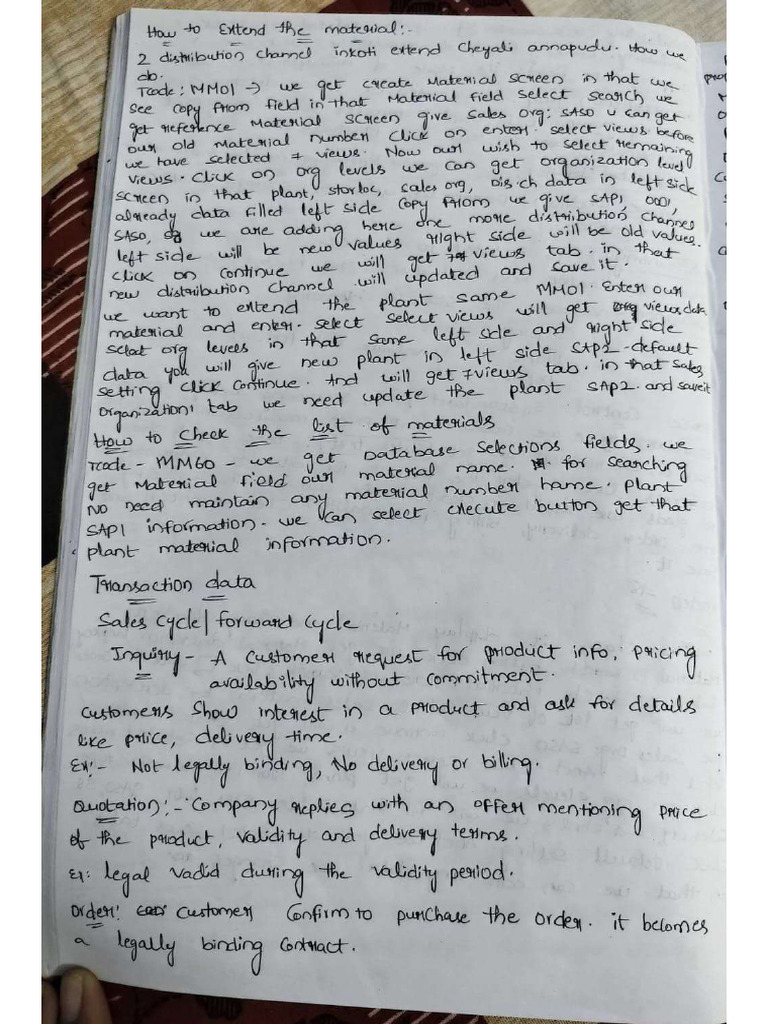 How to Extend the material:-
2 distribution channel inkoti extend Cheyali annapudu. How we
do.
Tcode: MM01 → we get create Material screen in that we
see copy from field in that Material field select search we
get reference Material screen give sales org: SASO u can get
our old Material number click on enter. select views before
we have selected 7 views. Now our wish to select remaining
views. click on org levels we can get organization level
screen in that plant, storloc, sales org, Dis.ch data in left side
already data filled left side copy from we give SAP1, 0001,
SASO, we are adding here one more distribution channel
left side will be new values right side will be old values.
click on continue we will get 7 views tab. in that
new distribution channel will updated and save it.
we want to extend the plant same MM01. Enter our
material and enter. select select views will get org views data
select org levels in that same left side and right side
data you will give new plant in left side SAP2 - default
setting click continue. And will get 7 views tab. in that sales
organization1 tab we need update the plant SAP2. and save it
How to check the list of materials
Tcode - MM60 - we get DataBase selections fields. we
get Material field our material name. for searching
No need maintain any material number name. plant
SAP1 information. we can select execute button get that
plant material information.
Transaction data
Sales cycle/forward cycle
Inquiry - A customer request for product info, pricing
availability without commitment.
customers show interest in a product and ask for details
like price, delivery time.
Ex:- Not legally binding, No delivery or billing.
Quotation:- Company replies with an offer mentioning price
of the product, validity and delivery terms.
Ex: legal vadid during the validity period.
Order: customer confirm to purchase the order. it becomes
a legally binding contract.